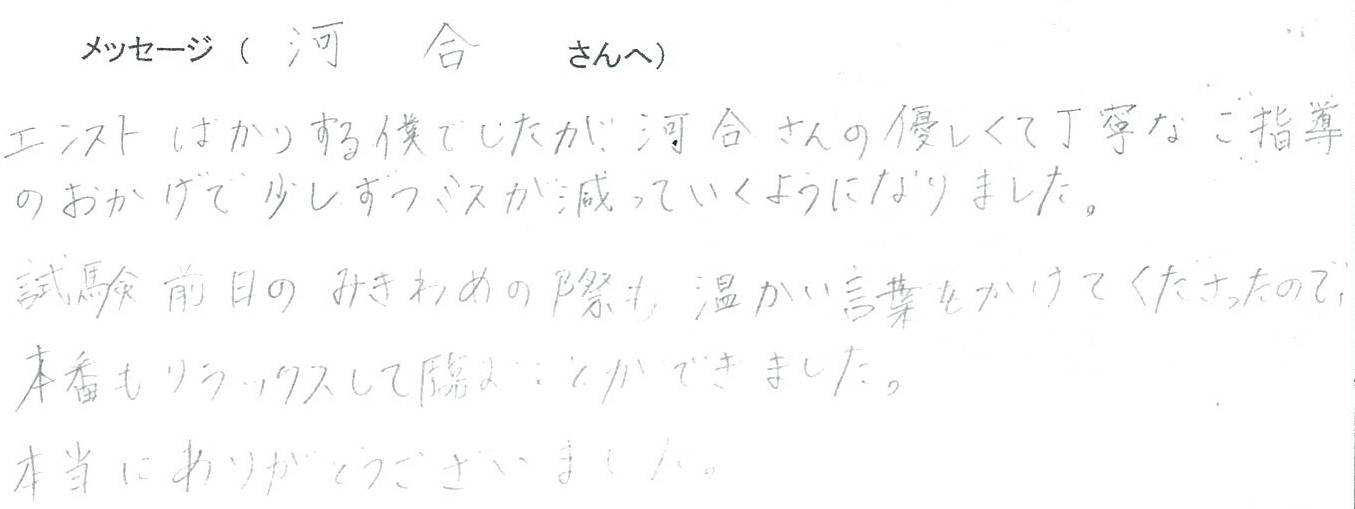 メッセージ（ 河 合 さんへ）
エンストばかりする僕でしたが、河合さんの優しくて丁寧なご指導
のおかげで少しずつミスが減っていくようになりました。
試験前日のみきわめの際も温かい言葉をかけてくださったので、
本番もリラックスして臨むことができました。
本当にありがとうございました。